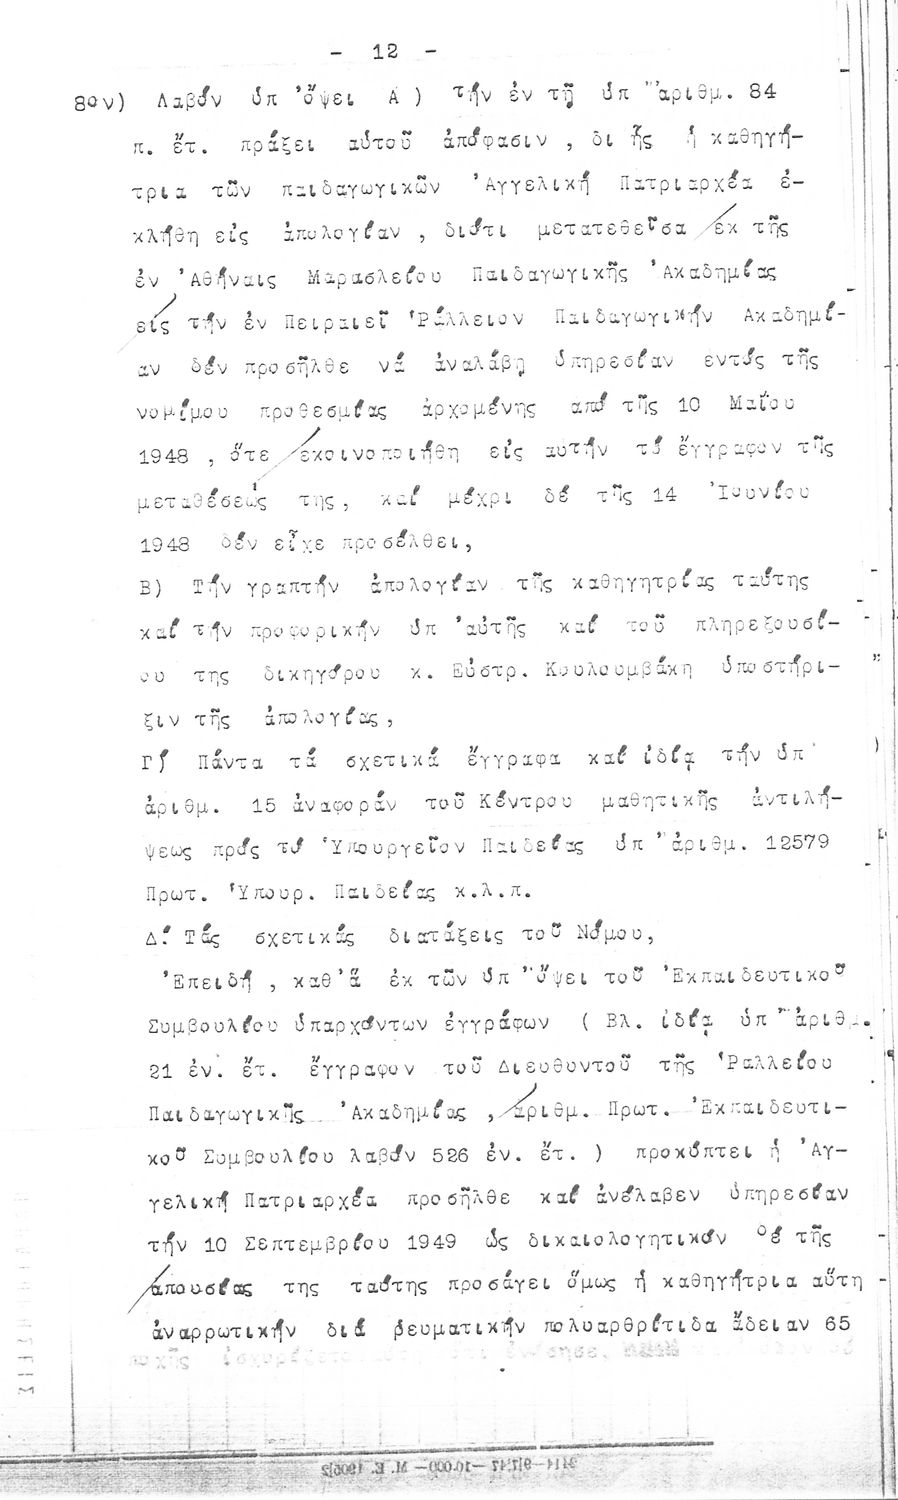 - 12 -
8ον) Λαβόν ὑπ' ὄψει Α) τήν ἐν τῇ ὑπ' ἀριθμ. 84
π. ἔτ. πράξει αὐτοῦ ἀπόφασιν, δι ἧς ἡ καθηγή-
τρια τῶν παιδαγωγικῶν Ἀγγελική Πατριαρχέα ἐ-
κλήθη εἰς ἀπολογίαν, διότι μετατεθεῖσα ἐκ τῆς
ἐν Ἀθήναις Μαρασλείου Παιδαγωγικῆς Ἀκαδημίας
εἰς τήν ἐν Πειραιεῖ Ῥάλλειον Παιδαγωγικήν Ακαδημί-
αν δέν προσῆλθε νά ἀναλάβῃ ὑπηρεσίαν εντός τῆς
νομίμου προθεσμίας ἀρχομένης από τῆς 10 Μαΐου
1948, ὅτε ἐκοινοποιήθη εἰς αυτήν τό ἔγγραφον τῆς
μεταθέσεώς της, καί μέχρι δέ τῆς 14 Ἰουνίου
1948 δέν εἶχε προσέλθει,
Β) Τήν γραπτήν ἀπολογίαν τῆς καθηγητρίας ταύτης
καί τήν προφορικήν ὑπ' αὐτῆς καί τοῦ πληρεξουσί-
ου της δικηγόρου κ. Εὐστρ. Κουλουμβάκη ὑποστήρι-
ξιν τῆς ἀπολογίας,
Γ) Πάντα τά σχετικά ἔγγραφα καί ἰδίᾳ τήν ὑπ'
ἀριθμ. 15 ἀναφοράν τοῦ Κέντρου μαθητικῆς ἀντιλή-
ψεως πρός τό Ὑπουργεῖον Παιδείας ὑπ' ἀριθμ. 12579
Πρωτ. Ὑπουρ. Παιδείας κ.λ.π.
Δ. Τάς σχετικάς διατάξεις τοῦ Νόμου,
Ἐπειδή, καθ' ἅ ἐκ τῶν ὑπ' ὄψει τοῦ Ἐκπαιδευτικοῦ
Συμβουλίου ὑπαρχόντων ἐγγράφων ( Βλ. ἰδίᾳ ὑπ' ἀριθμ.
21 ἐν. ἔτ. ἔγγραφον τοῦ Διευθυντοῦ τῆς Ῥαλλείου
Παιδαγωγικῆς Ἀκαδημίας, ἀριθμ. Πρωτ. Ἐκπαιδευτι-
κοῦ Συμβουλίου λαβόν 526 ἐν. ἔτ. ) προκύπτει ἡ Ἀγ-
γελική Πατριαρχέα προσῆλθε καί ἀνέλαβεν ὑπηρεσίαν
τήν 10 Σεπτεμβρίου 1949 ὡς δικαιολογητικόν δέ τῆς
ἀπουσίας της ταύτης προσάγει ὅμως ἡ καθηγήτρια αὕτη
ἀναρρωτικήν διά ῥευματικήν πολυαρθρίτιδα ἄδειαν 65